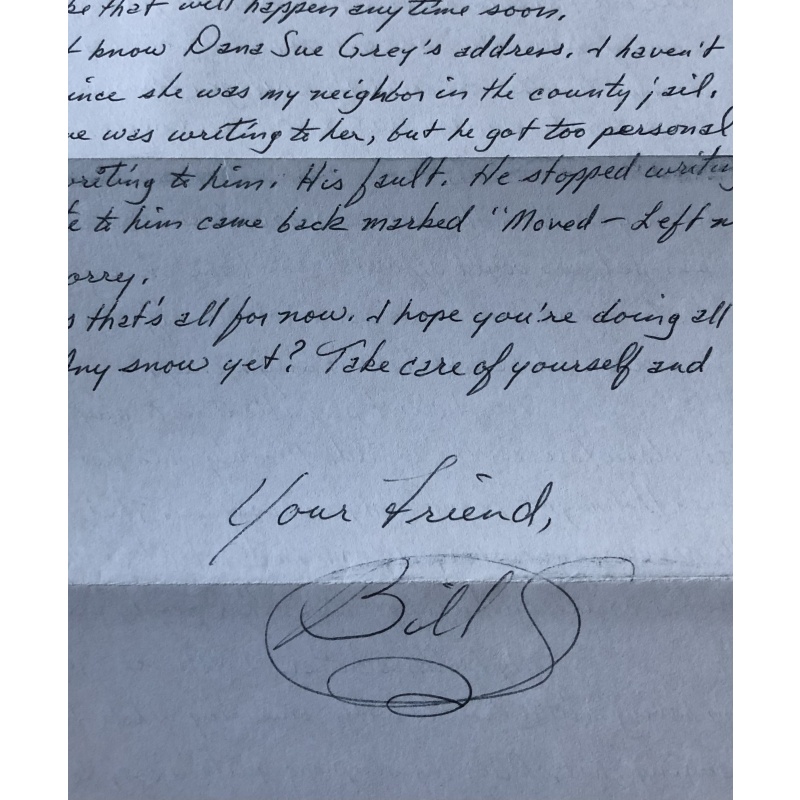 be that will happen anytime soon.
t know Dana Sue Grey's address. I haven't
ince she was my neighbor in the county jail.
e was writing to her, but he got too personal
riting to him. His fault. He stopped writing
e to him came back marked "Moved – Left n
orry.
s that's all for now. I hope you're doing all
Any snow yet? Take care of yourself and
Your Friend,
Bill